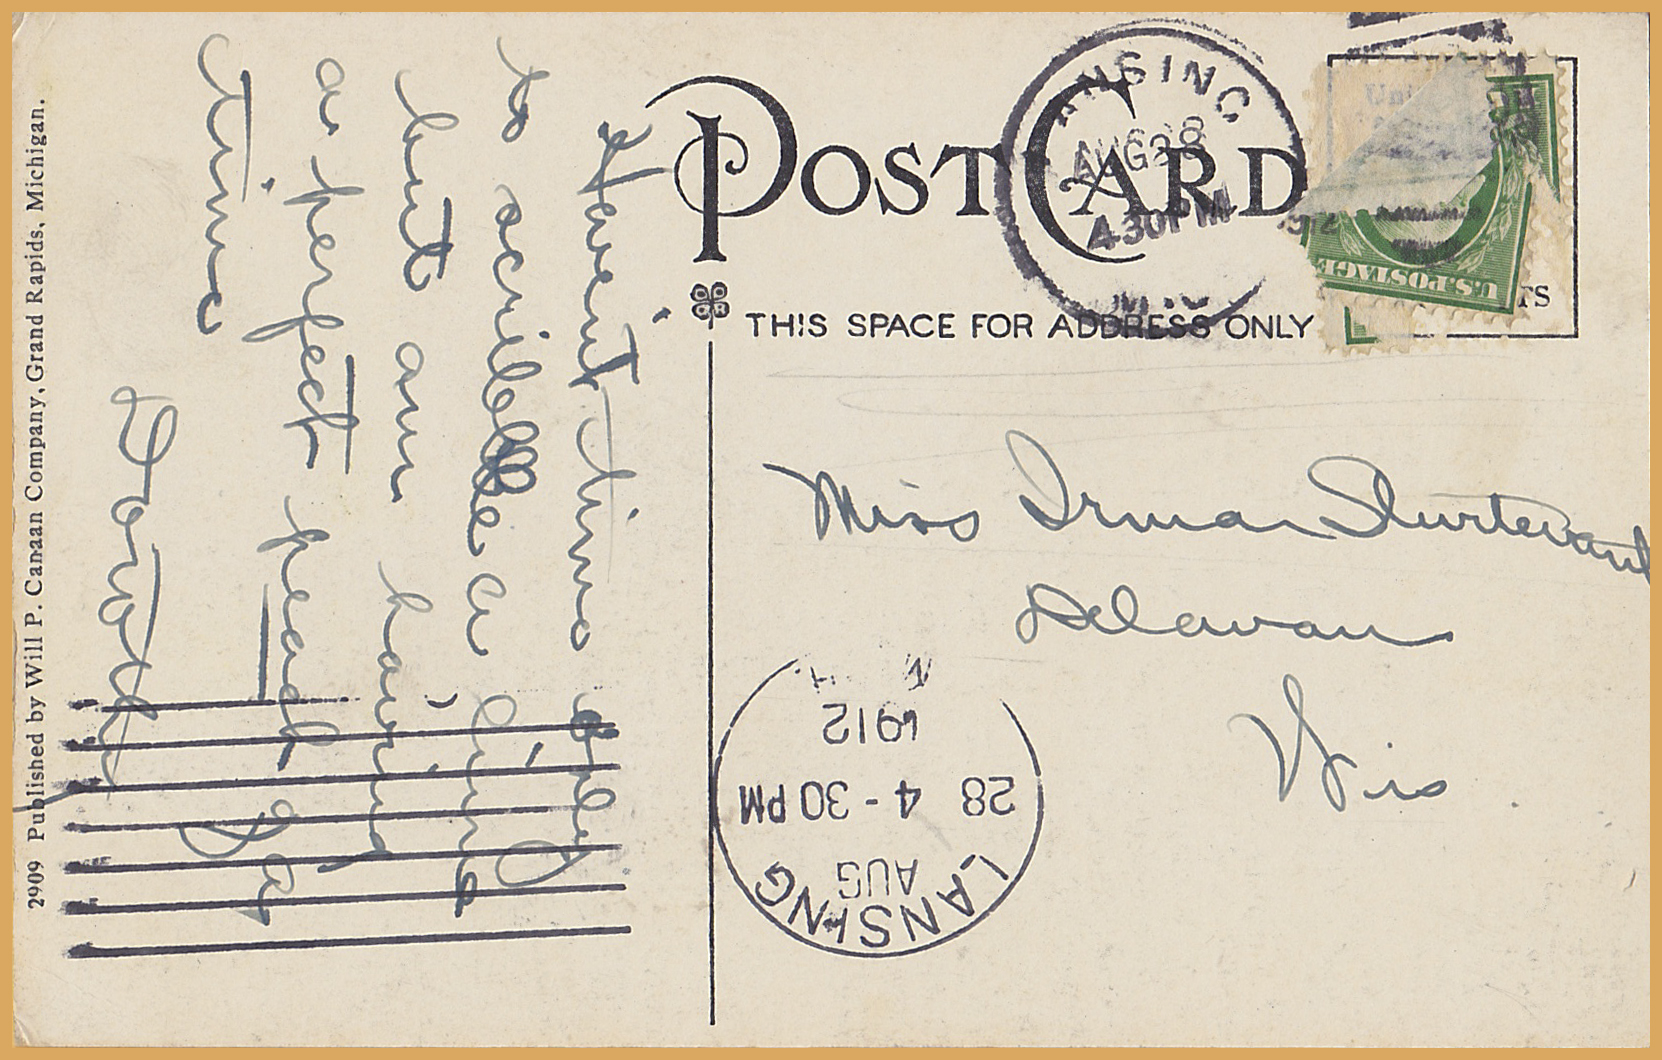 POST CARD
THIS SPACE FOR ADDRESS ONLY
LANSING
AUG 28
4 30 PM
1912
MICH
U.S. POSTAGE
TS
Haven't time only
to scribble a line
but am having
a perfect peach of a
time
Dorothy
Miss Irma Sturtevant
Delavan
Wis
LANSING
AUG
28 4-30 PM
1912
2909 Published by Will P. Canaan Company, Grand Rapids, Michigan.